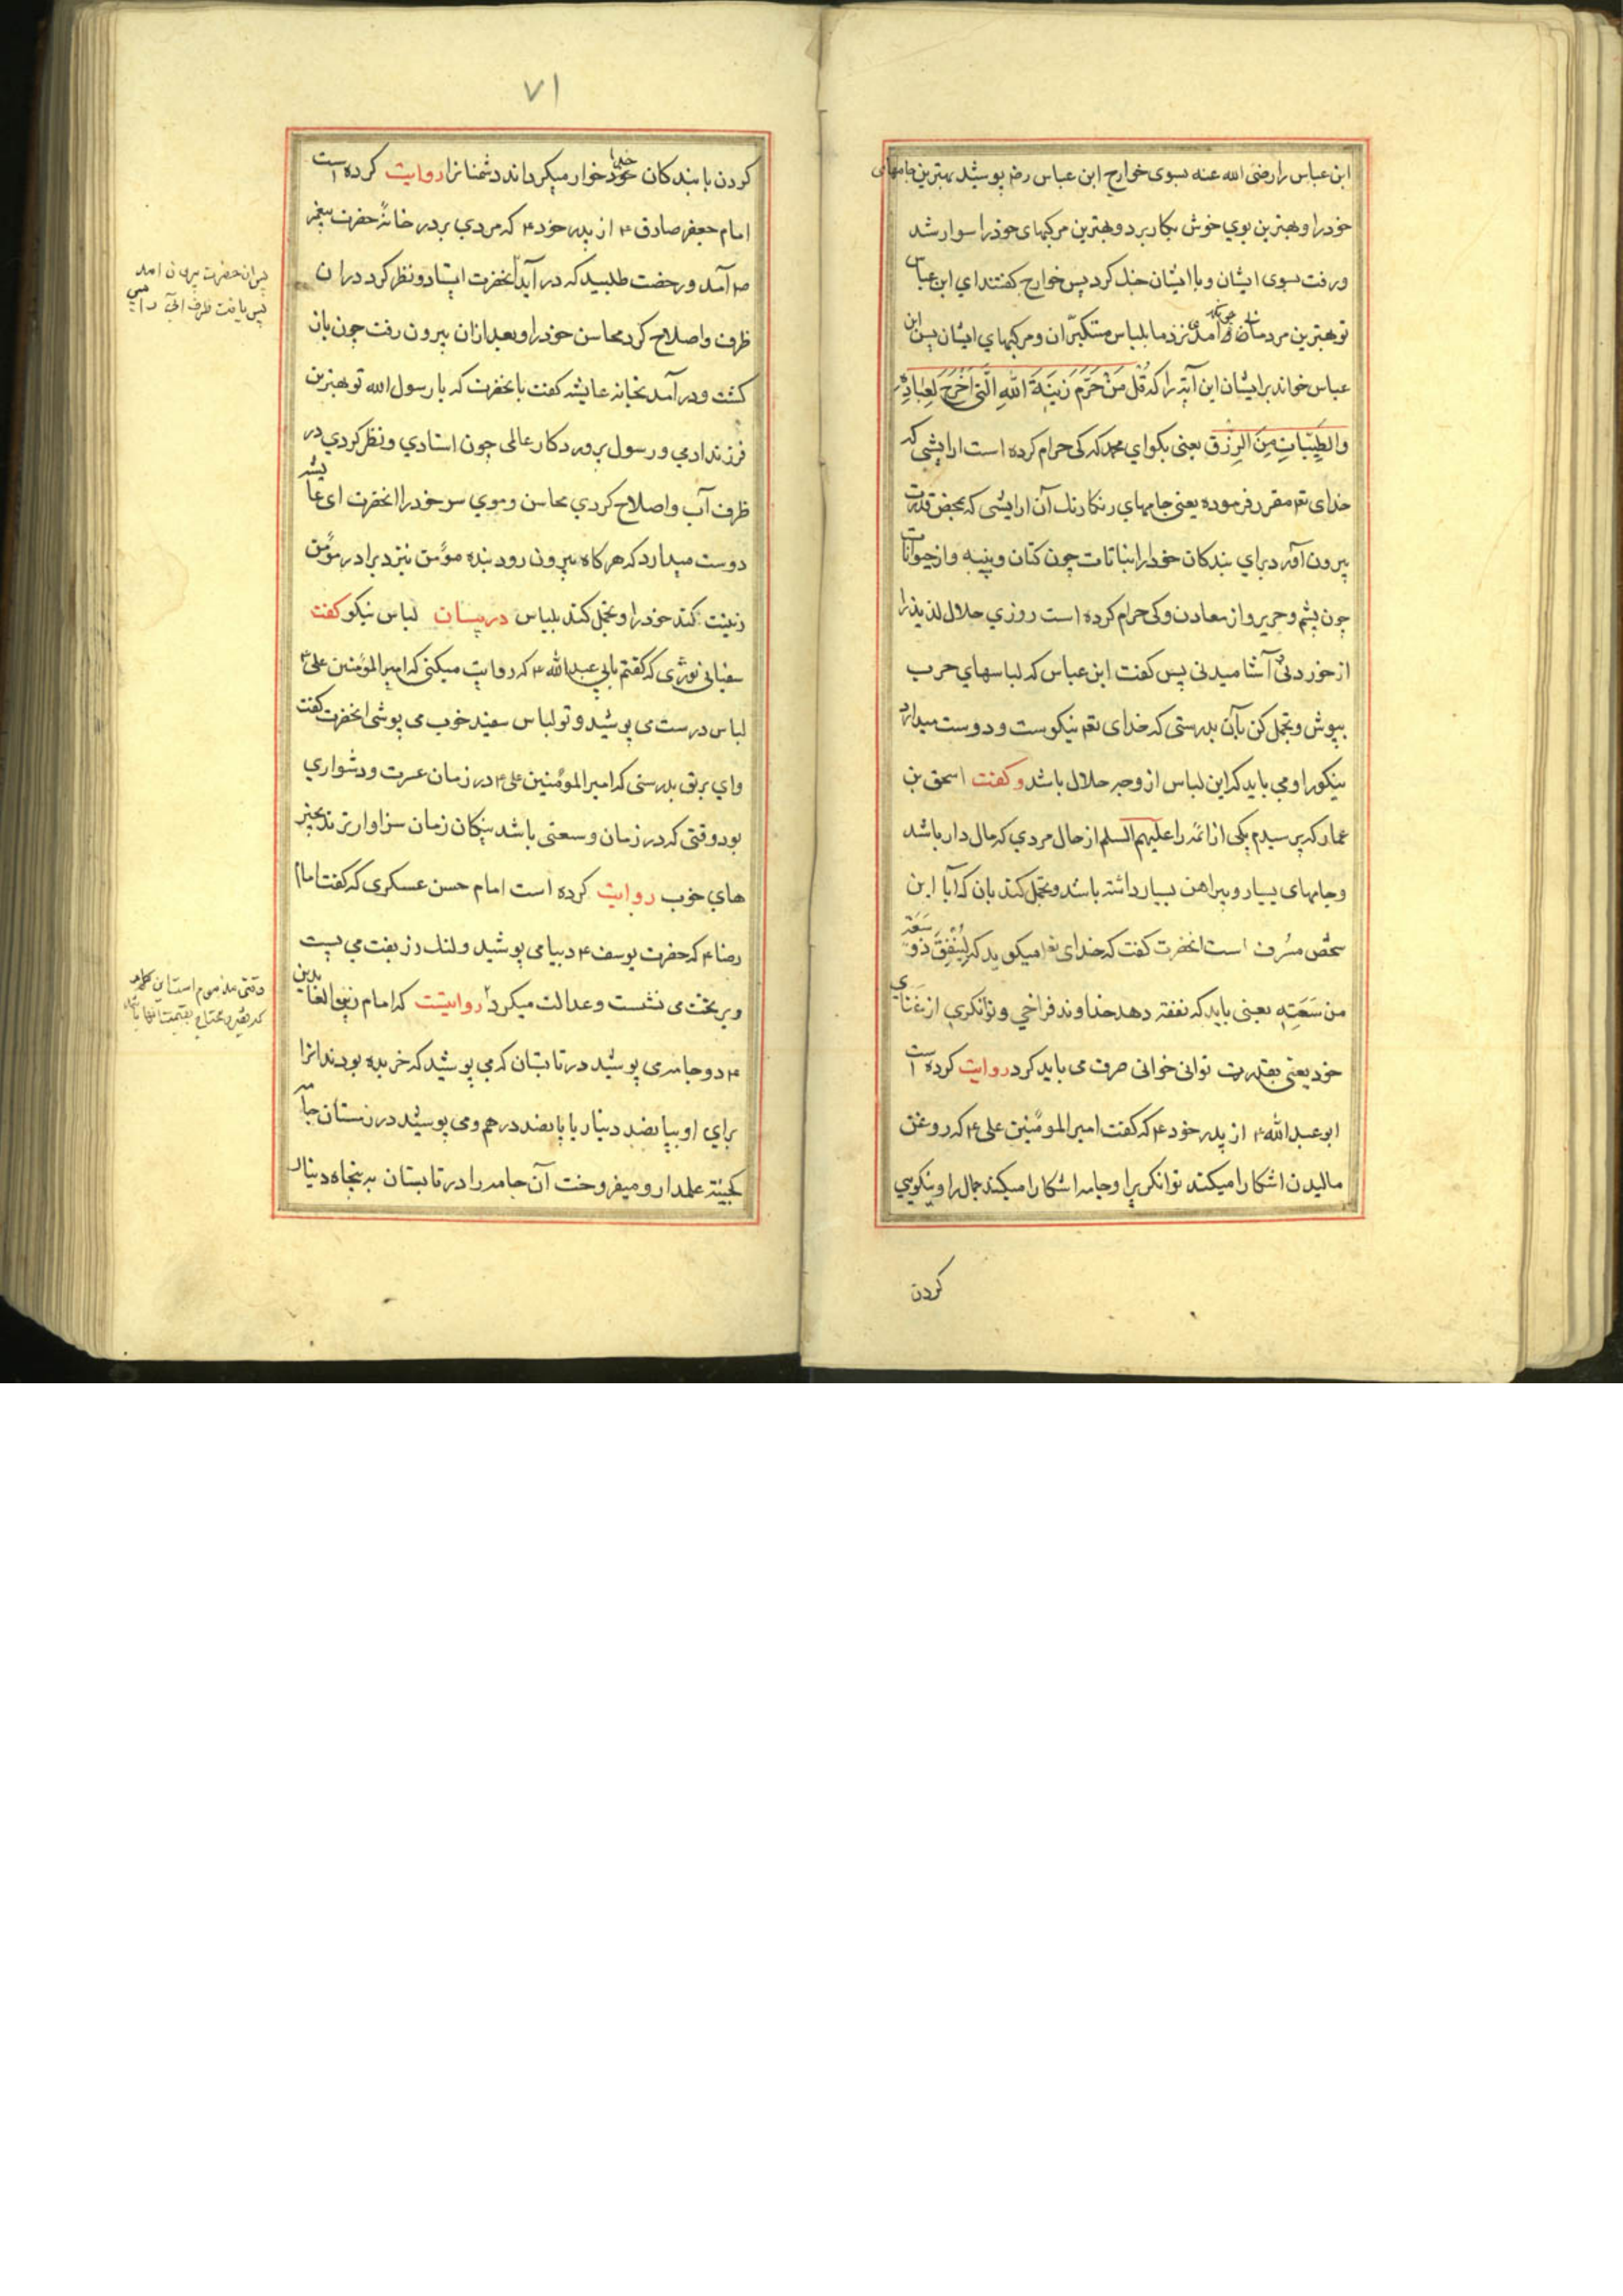 ابن عباس را رضی الله عنه بسوی خوارج ابن عباس رض پوشید بهترین جامهای
خود را و بهترین بوي خوش بکار برد و بهترین مرکبهای خود را سوار شد
و رفت بسوی ایشان و با ایشان جنك کرد پس خوارج کفتند اي ابن عباس
تو بهترین مردمان آمدی نزد ما بلباس متکبّران و مرکبهاي ایشان پس ابن
عباس خواند بر ایشان این آیه را که قُل مَنْ حَرَّمَ زِینَةَ اللّهِ الَّتِی اَخْرَجَ لِعِبادِهِ
والطَّیِّباتِ مِنَ الرِزق یعنی بکو اي محمد که کی حرام کرده است ارایشی که
خدای تع مقرر فرموده یعنی جامهاي رنکارنك آن ارایشی که بمحض قدرت
بیرون آورد براي بندکان خود از نباتات چون کتان و پنبه و از حیوانات
چون پشم و حریر و از معادن و کی حرام کرده است روزي حلال لذیذ را
از خوردنی آشامیدنی پس کفت ابن عباس که لباسهاي حرب
بپوش و تجمل کن بآن بدرستی که خدای تع نیکوست و دوست میدارد
نیکو را و می باید که این لباس از وجه حلال باشد و کفت اسحق بن
عمار که پرسیدم یکی از ائمه را علیهم السلم از حال مردي که مال دار باشد
و جامهای بسیار و پیراهن بسیار داشته باشد و تجمل کند بان که آیا این
شخص مسُرف است انحضرت کفت که خدای تع میکوید که لِیُنْفِقْ ذُو سَعَةٍ
من سَعَتِهِ یعنی باید که نفقه دهد خداوند فراخي و توانکري از غناي
خود یعنی بقدرت توانی خوانی صرف می باید کرد روایت کرده است
ابو عبد الله ۴ از پدر خود ۴ که کفت امیر المومنین علی ۴ که روغن
مالیدن اشکارا میکند توانکری را و جامه اشکارا میکند جمال را و نیکویي
کردن
۷۱
کردن با بندکان خود خدا خوار میکرداند دشمنانرا روایت کرده است
امام جعفر صادق ۴ از پدر خود ۴ که مردي بر در خانهٔ حضرت پیغمبر
ص آمد و رخصت طلبید که در آید انحضرت ایستاد و نظر کرد در ان
ظرف و اصلاح کرد محاسن خود را و بعد از ان بیرون رفت چون باز
کشت و در آمد بخانه عایشه کفت بانحضرت که یا رسول الله تو بهترین
فرزند ادمي و رسول پروردکار عالمی چون استادي و نظر کردي در
ظرف آب و اصلاح کردي محاسن و موي سر خود را انحضرت ای عایشه
دوست میدارد که هر کاه بیرون رود بنده مؤمن نزد برادر مؤمن
زینت کند خود را و تجمل کند بلباس در بیان لباس نیکو کفت
سفیان ثوری که کفتم بابي عبد الله ۴ که روایت میکنی که امیر المومنین علی ۴
لباس درست می پوشید و تو لباس سفید خوب می پوشی انحضرت کفت
واي بر تو بدرستی که امیر المومنین علی ۴ در زمان عسرت و دشواري
بود وقتی که در زمان وسعتی باشد نیکان زمان سزاوارترند بچیز
هاي خوب روایت کرده است امام حسن عسکري که کفت امام
رضا ۴ که حضرت یوسف ۴ دیبا می پوشید و لنك زر بفت می بست
و بر تخت می نشست و عدالت میکرد روایتست که امام زین العابدین
۴ دو جامه می پوشید در تابستان که می پوشید که خریده بودند انرا
براي او بپانصد دینار یا پانصد درهم و می پوشید در زمستان جامه
علمدار و میفروخت آن جامه را در تابستان به پنجاه دینار
پس ان حضرت بیرون امد
پس یافت ظرف
وقتی مذموم است این کلام